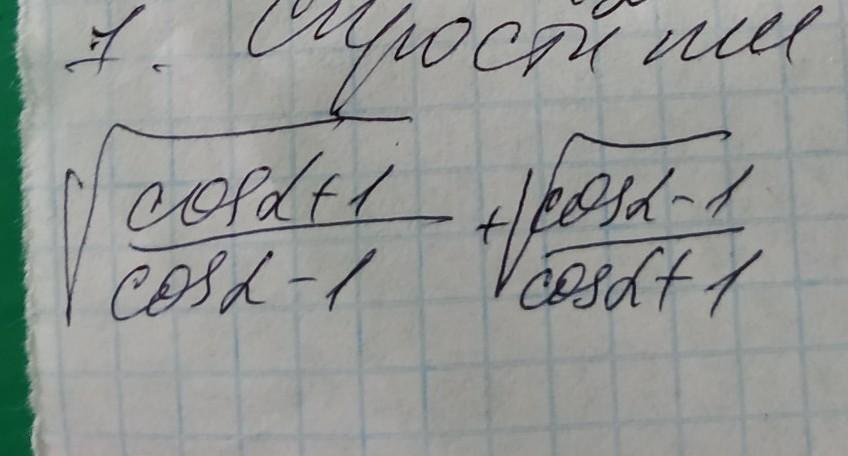 7. Спростити
√(cosα+1)/(cosα-1) + √(cosα-1)/(cosα+1)